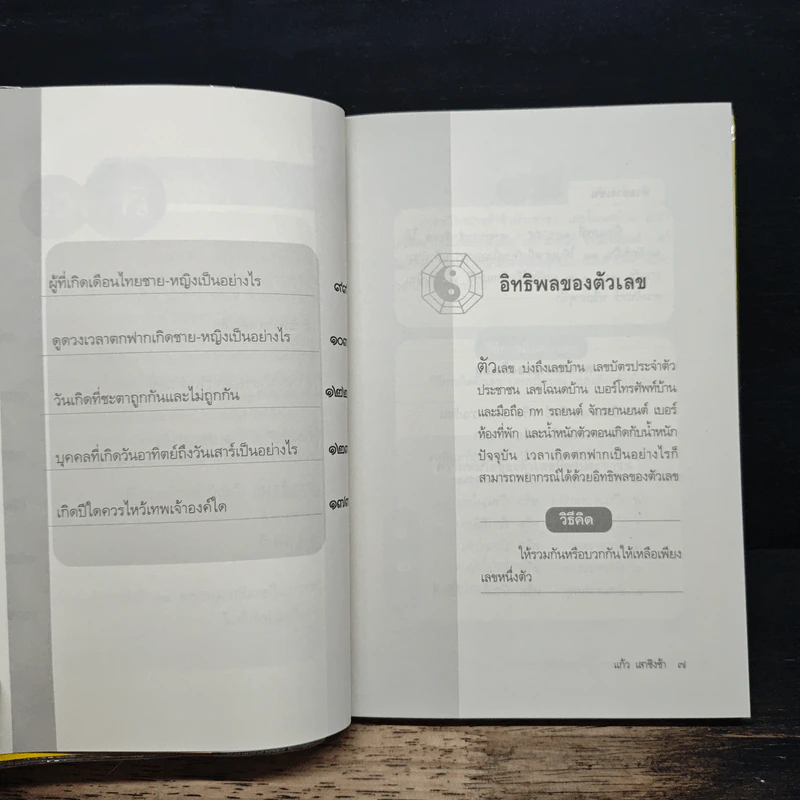 ผู้ที่เกิดเดือนไทยชาย-หญิงเป็นอย่างไร ๙๙
ดูดวงเวลาตกฟากเกิดชาย-หญิงเป็นอย่างไร ๑๐๓
วันเกิดที่ชะตาถูกกันและไม่ถูกกัน ๑๒๒
บุคคลที่เกิดวันอาทิตย์ถึงวันเสาร์เป็นอย่างไร ๑๒๓
เกิดปีใดควรไหว้เทพเจ้าองค์ใด ๑๗๓
อิทธิพลของตัวเลข
ตัวเลข บ่งถึงเลขบ้าน เลขบัตรประจำตัว
ประชาชน เลขโฉนดบ้าน เบอร์โทรศัพท์บ้าน
และมือถือ กท รถยนต์ จักรยานยนต์ เบอร์
ห้องที่พัก และน้ำหนักตัวตอนเกิดกับน้ำหนัก
ปัจจุบัน เวลาเกิดตกฟากเป็นอย่างไรก็
สามารถพยากรณ์ได้ด้วยอิทธิพลของตัวเลข
วิธีคิด
ให้รวมกันหรือบวกกันให้เหลือเพียง
เลขหนึ่งตัว
แก้ว เสาชิงช้า ๗